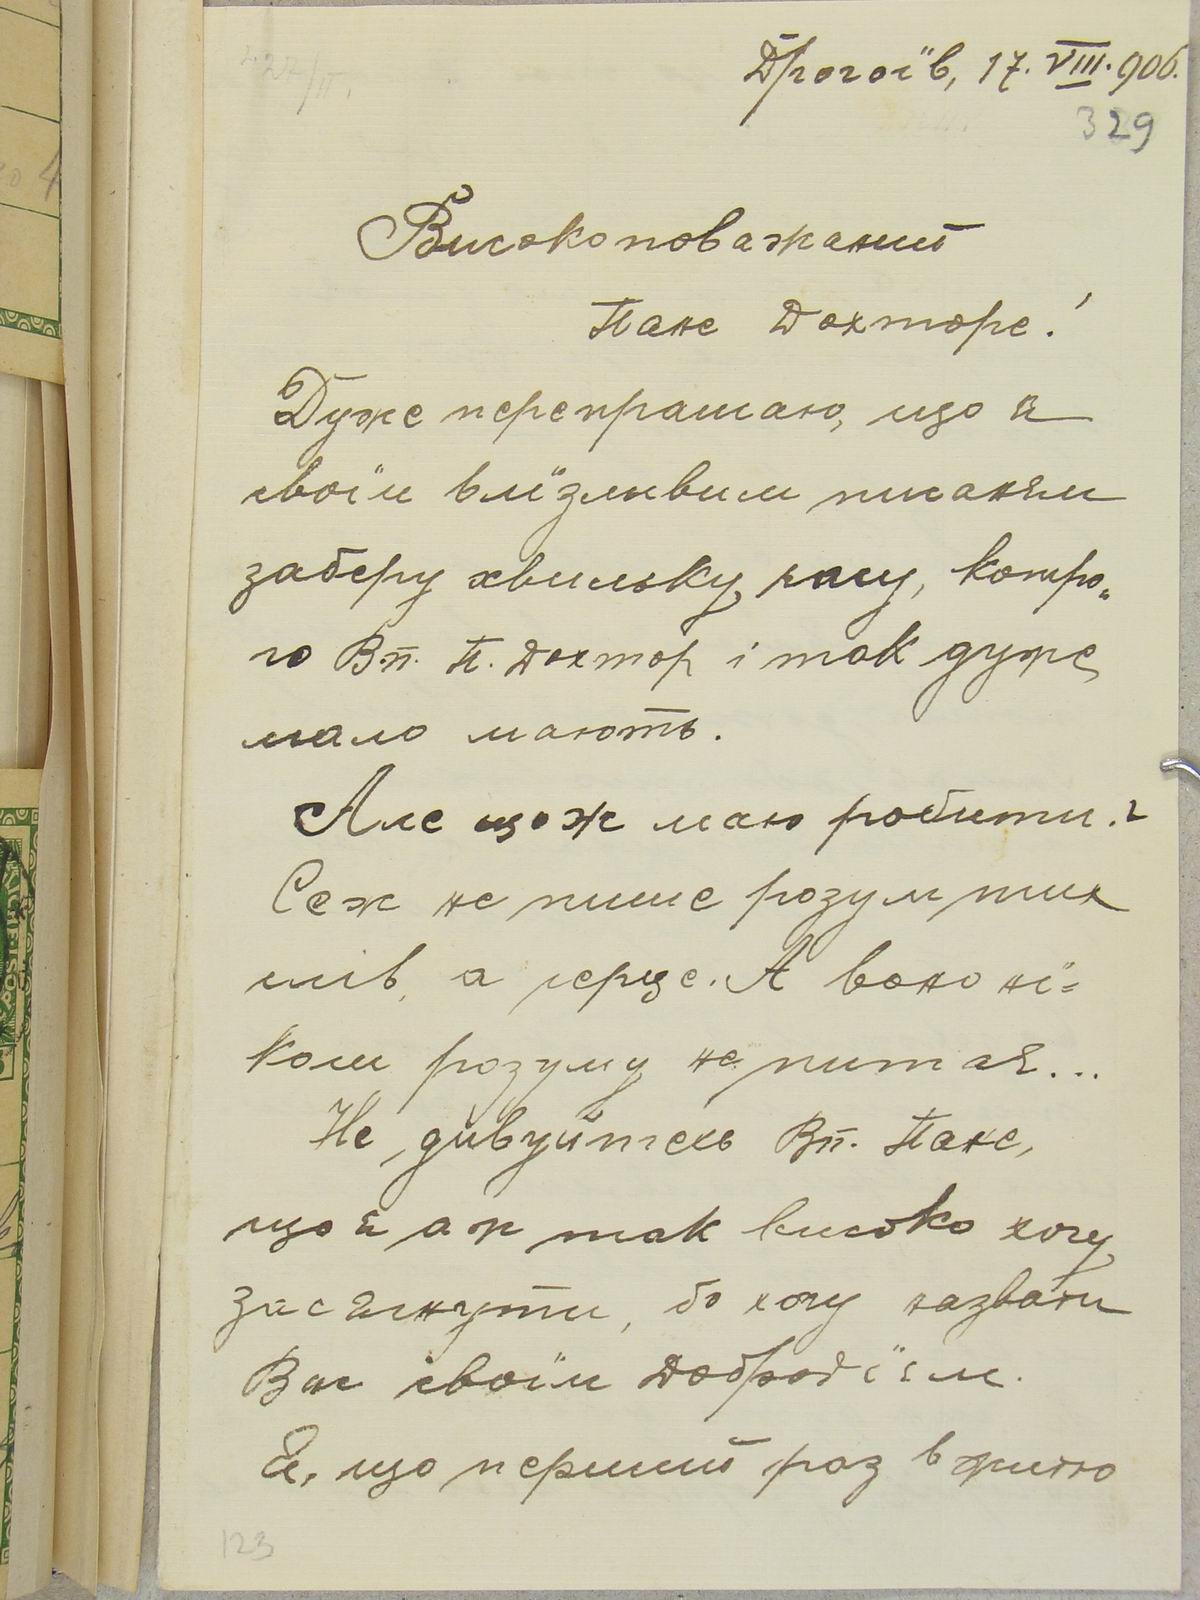 Дрогоїв, 17. VIII. 906.
329
Високоповажаний
Пане Дохторе!
Дуже перепрашаю, що я
своїм влїзливим писаням
заберу хвильку часу, котро„
го Вп. П. Дохтор і так дуже
мало мають.
Але щож маю робити?
Сеж не пише розум тих
слів, а серце. А воно нї=
коли розуму не питая...
Не дивуйтесь Вп. Пане,
що я аж так високо хочу
засягнути, бо хочу назвати
Вас своїм Добродїєм.
Я, що перший раз в житю
123